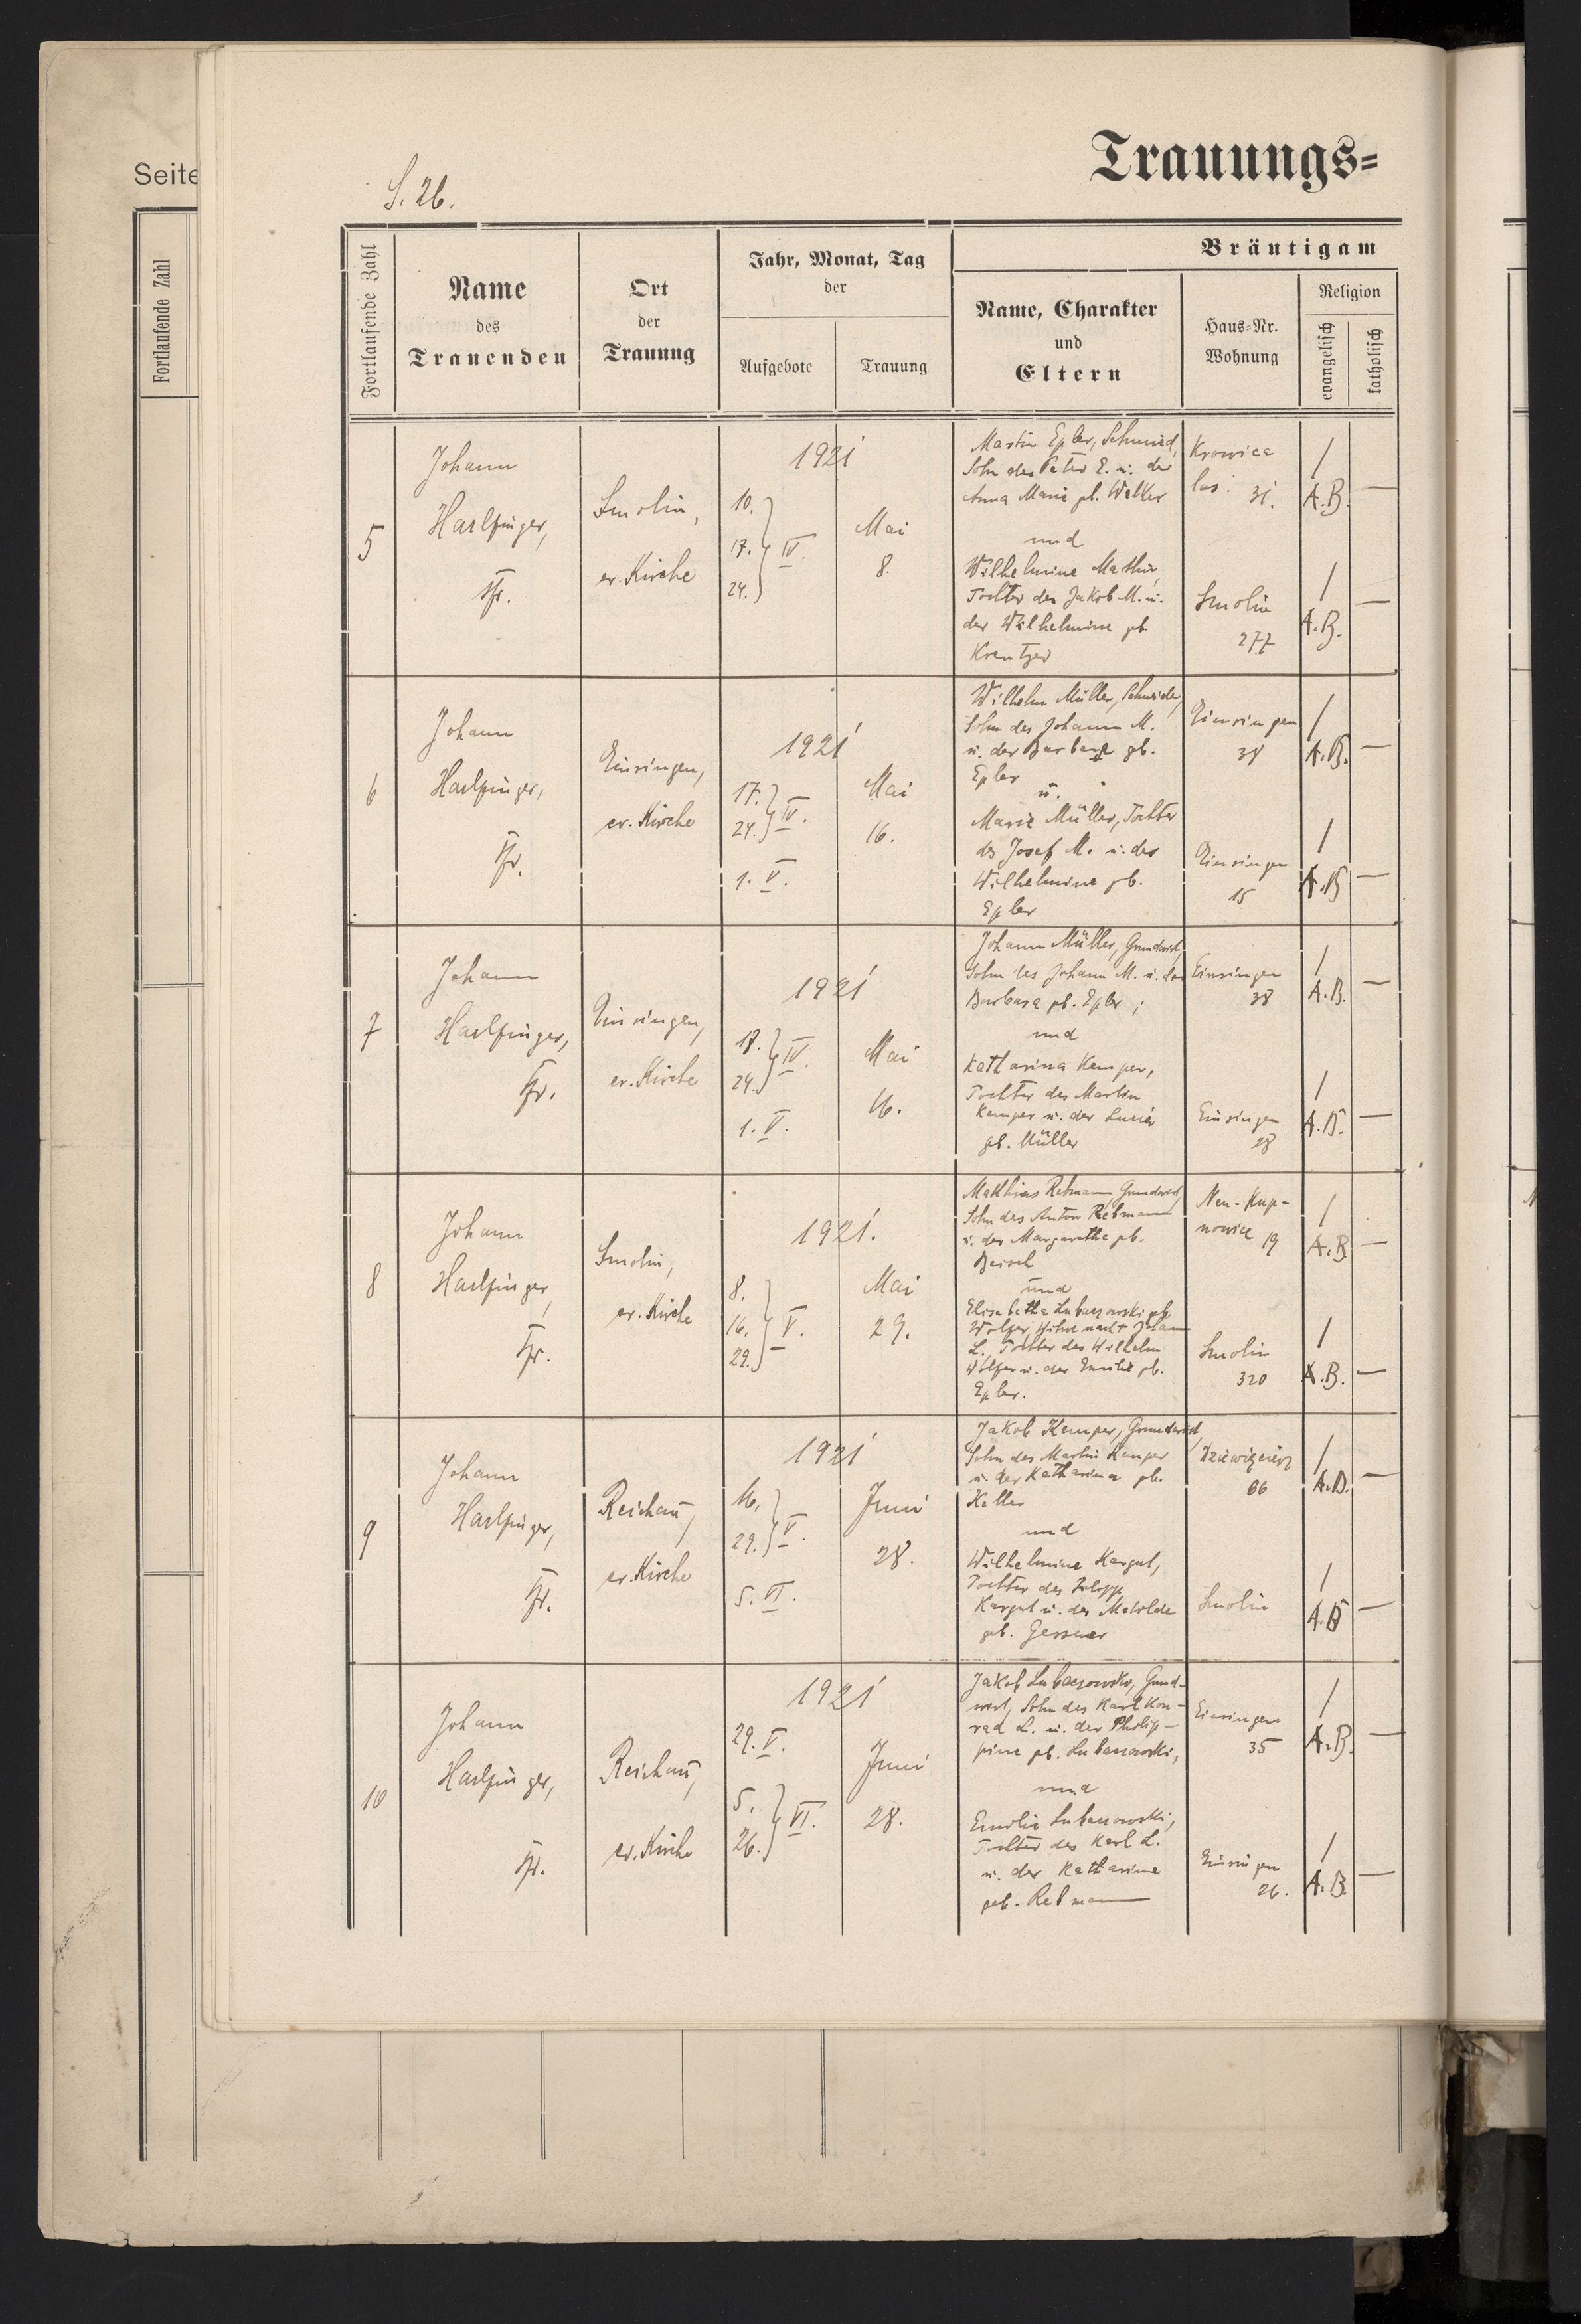 Seite
Fortlaufende Zahl
S. 26.
Trauungs=
Fortlaufende Zahl
Name
des
Trauenden
Ort
der
Trauung
Jahr, Monat, Tag
der
Aufgebote
Trauung
Bräutigam
Name, Charakter
und
Eltern
Haus=Nr.
Wohnung
Religion
evangelisch
katholisch
5
Johann
Harlfinger,
Pfr.
Smolin,
ev. Kirche
1921
10.
17. IV.
24.
Mai
8.
Martin Epler, Schmied,
Sohn des Peter E. u. der
Anna Marie gb. Walker
und
Wilhelmine Mathis,
Tochter des Jakob M. u.
der Wilhelmine gb.
Kreutzer
Krowica
las. 31.
Smolin
277
/
A.B. —
/
A.B. —
6
Johann
Harlfinger,
Pfr.
Einsingen,
ev. Kirche
1921
17.
24. IV.
1. V.
Mai
16.
Wilhelm Müller, Schneider,
Sohn des Johann M.
u. der Barbara gb.
Epler
u.
Marie Müller, Tochter
des Josef M. u. der
Wilhelmine gb.
Epler
Einsingen
38
Einsingen
15
/
A.B. —
/
A.B —
7
Johann
Harlfinger,
Pfr.
Einsingen,
ev. Kirche
1921
18.
24. IV.
1. V.
Mai
16.
Johann Müller, Grundwirt,
Sohn des Johann M. u. der
Barbara gb. Epler;
und
Katharina Kemper,
Tochter des Martin
Kemper u. der Luisa
gb. Müller
Einsingen
38
Einsingen
28
/
A.B. —
/
A.B. —
8
Johann
Harlfinger,
Pfr.
Smolin,
ev. Kirche
1921.
8.
16. V.
29.
Mai
29.
Mathias Rebmann, Grundwirt,
Sohn des Anton Rebmann
u. der Margaretha gb.
Beisch
und
Elisabetha Lubaczowski gb.
Wolfer, Witwe nach † Johann
L., Tochter des Wilhelm
Wolfer u. der Emilie gb.
Epler.
Neu-Kup-
nowice 19
Smolin
320
/
A.B —
/
A.B. —
9
Johann
Harlfinger,
Pfr.
Reichau,
ev. Kirche
1921
16.
29. V.
5. VI.
Juni
28.
Jakob Kemper, Grundwirt,
Sohn des Martin Kemper
u. der Katharina gb.
Keller
und
Wilhelmine Kargul,
Tochter des Filipp
Kargul u. der Matilde
gb. Gessner
Dziewięcierz
66
Smolin
/
A.B. —
/
A.B —
10
Johann
Harlfinger,
Pfr.
Reichau,
ev. Kirche
1921
29. V.
5.
26. VI.
Juni
28.
Jakob Lubaczowski, Grund-
wirt, Sohn des Karl Kon-
rad L. u. der Philip-
pine gb. Lubaczowski,
und
Emilie Lubaczowski,
Tochter des Karl L.
u. der Katharina
geb. Rebmann
Einsingen
35
Einsingen
26.
/
A.B. —
/
A.B —